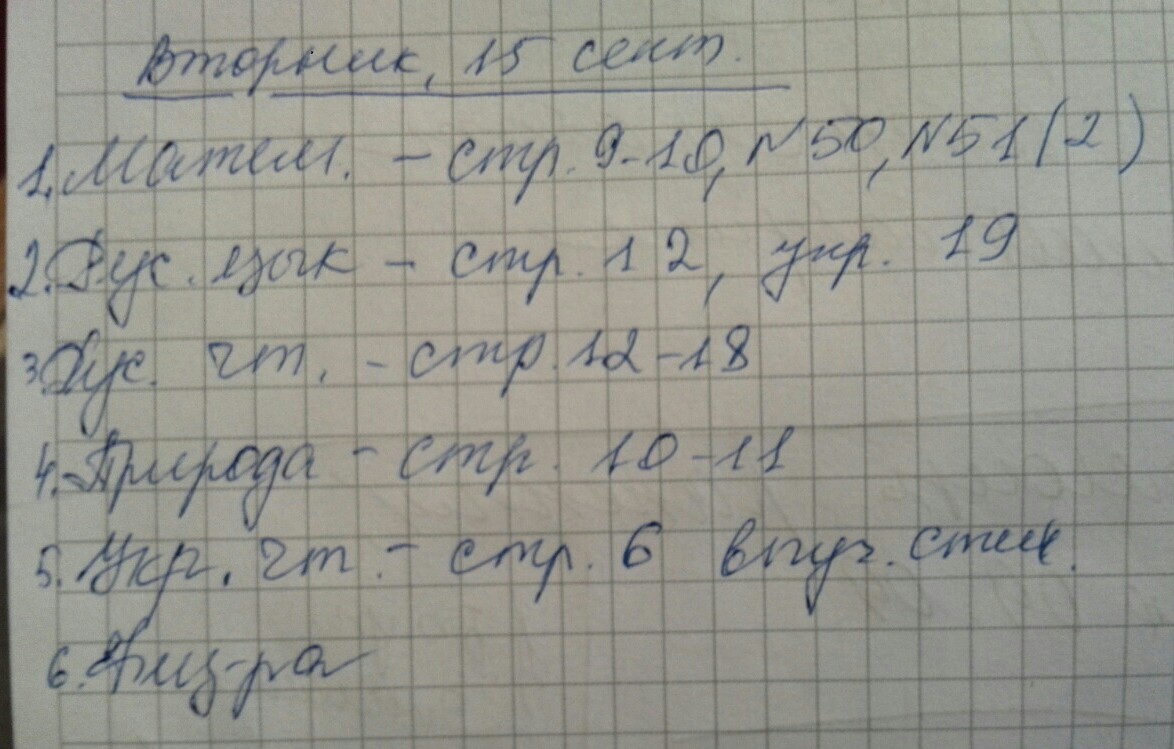 Вторник, 15 сент.
1. Матем. - стр. 9-10, N50, N51(2)
2. Рус. язык - стр. 12, упр. 19
3. Рус. чт. - стр. 12-18
4. Природа - стр. 10-11
5. Укр. чт. - стр. 6 выуч. стих.
6. Физ-ра